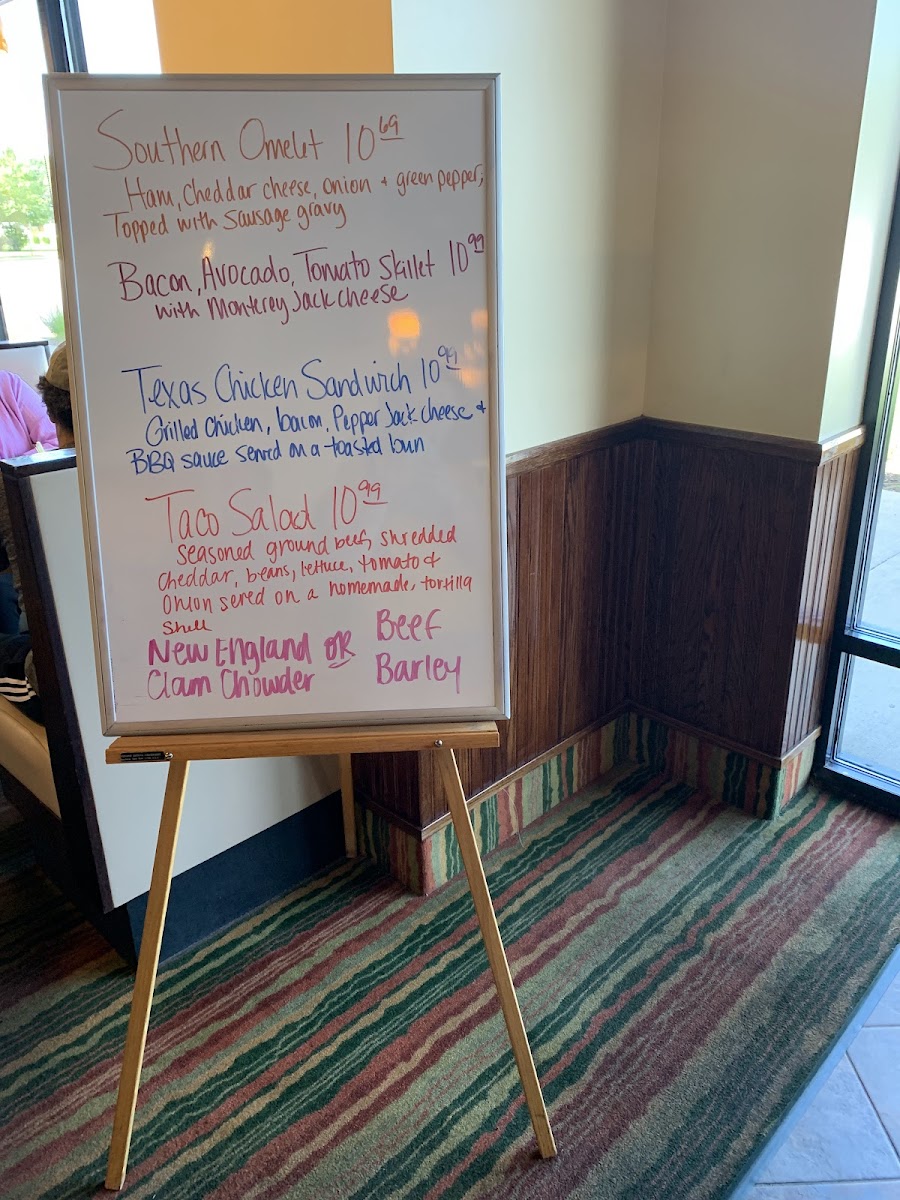 Southern Omelet 10 69
Ham, Cheddar cheese, onion + green pepper,
Topped with sausage gravy
Bacon, Avocado, Tomato Skillet 10 99
with Monterey Jack cheese
Texas Chicken Sandwich 10 99
Grilled Chicken, bacon, Pepper Jack cheese +
BBQ sauce served on a toasted bun
Taco Salad 10 99
seasoned ground beef, shredded
cheddar, beans, lettuce, tomato +
Onion sered on a homemade, tortilla
shell
New England OR Beef
Clam Chowder Barley